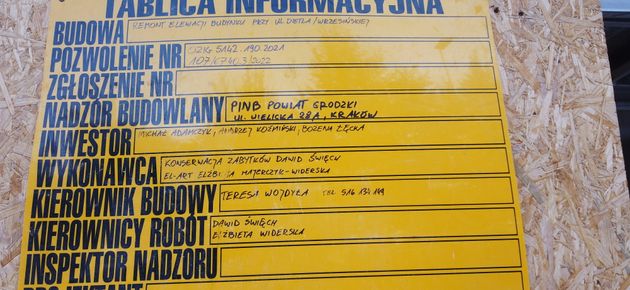 TABLICA INFORMACYJNA
BUDOWA REMONT ELEWACJI BUDYNKU PRZY UL. DIETLA/WRZESIŃSKIEJ
POZWOLENIE NR OZKG 5142.190.2021
107/6740.3/2022
ZGŁOSZENIE NR
NADZÓR BUDOWLANY PINB POWIAT GRODZKI
UL. WIELICKA 28A, KRAKÓW
INWESTOR MICHAŁ ADAMCZYK, ANDRZEJ KOŹMIŃSKI, BOŻENA ŁĘCKA
WYKONAWCA KONSERWACJA ZABYTKÓW DAWID ŚWIĘCH
EL-ART ELŻBIETA MAJERCZYK-WIDERSKA
KIEROWNIK BUDOWY TERESA WOJDYŁA TEL 516 134 149
KIEROWNICY ROBÓT DAWID ŚWIĘCH
ELŻBIETA WIDERSKA
INSPEKTOR NADZORU
PROJEKTANT